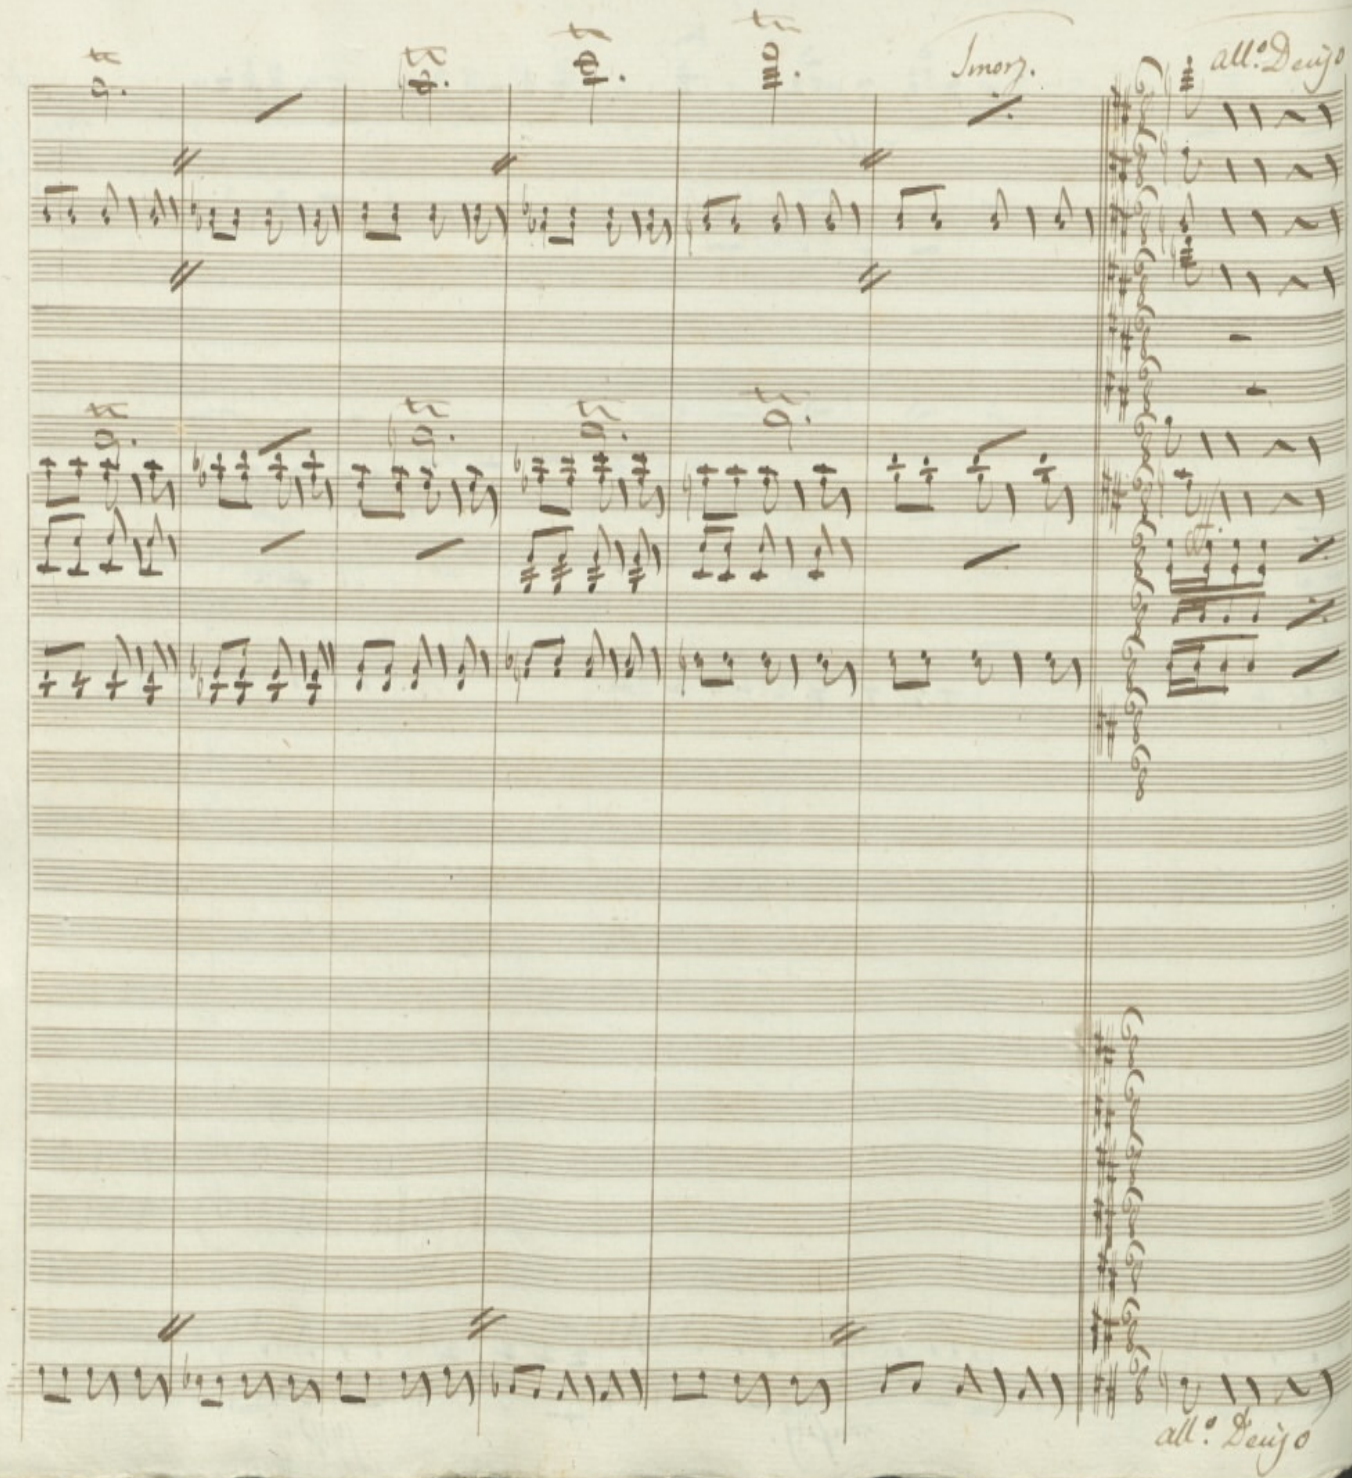 Smorz.
all.o Deciso
ff
all.o Deciso